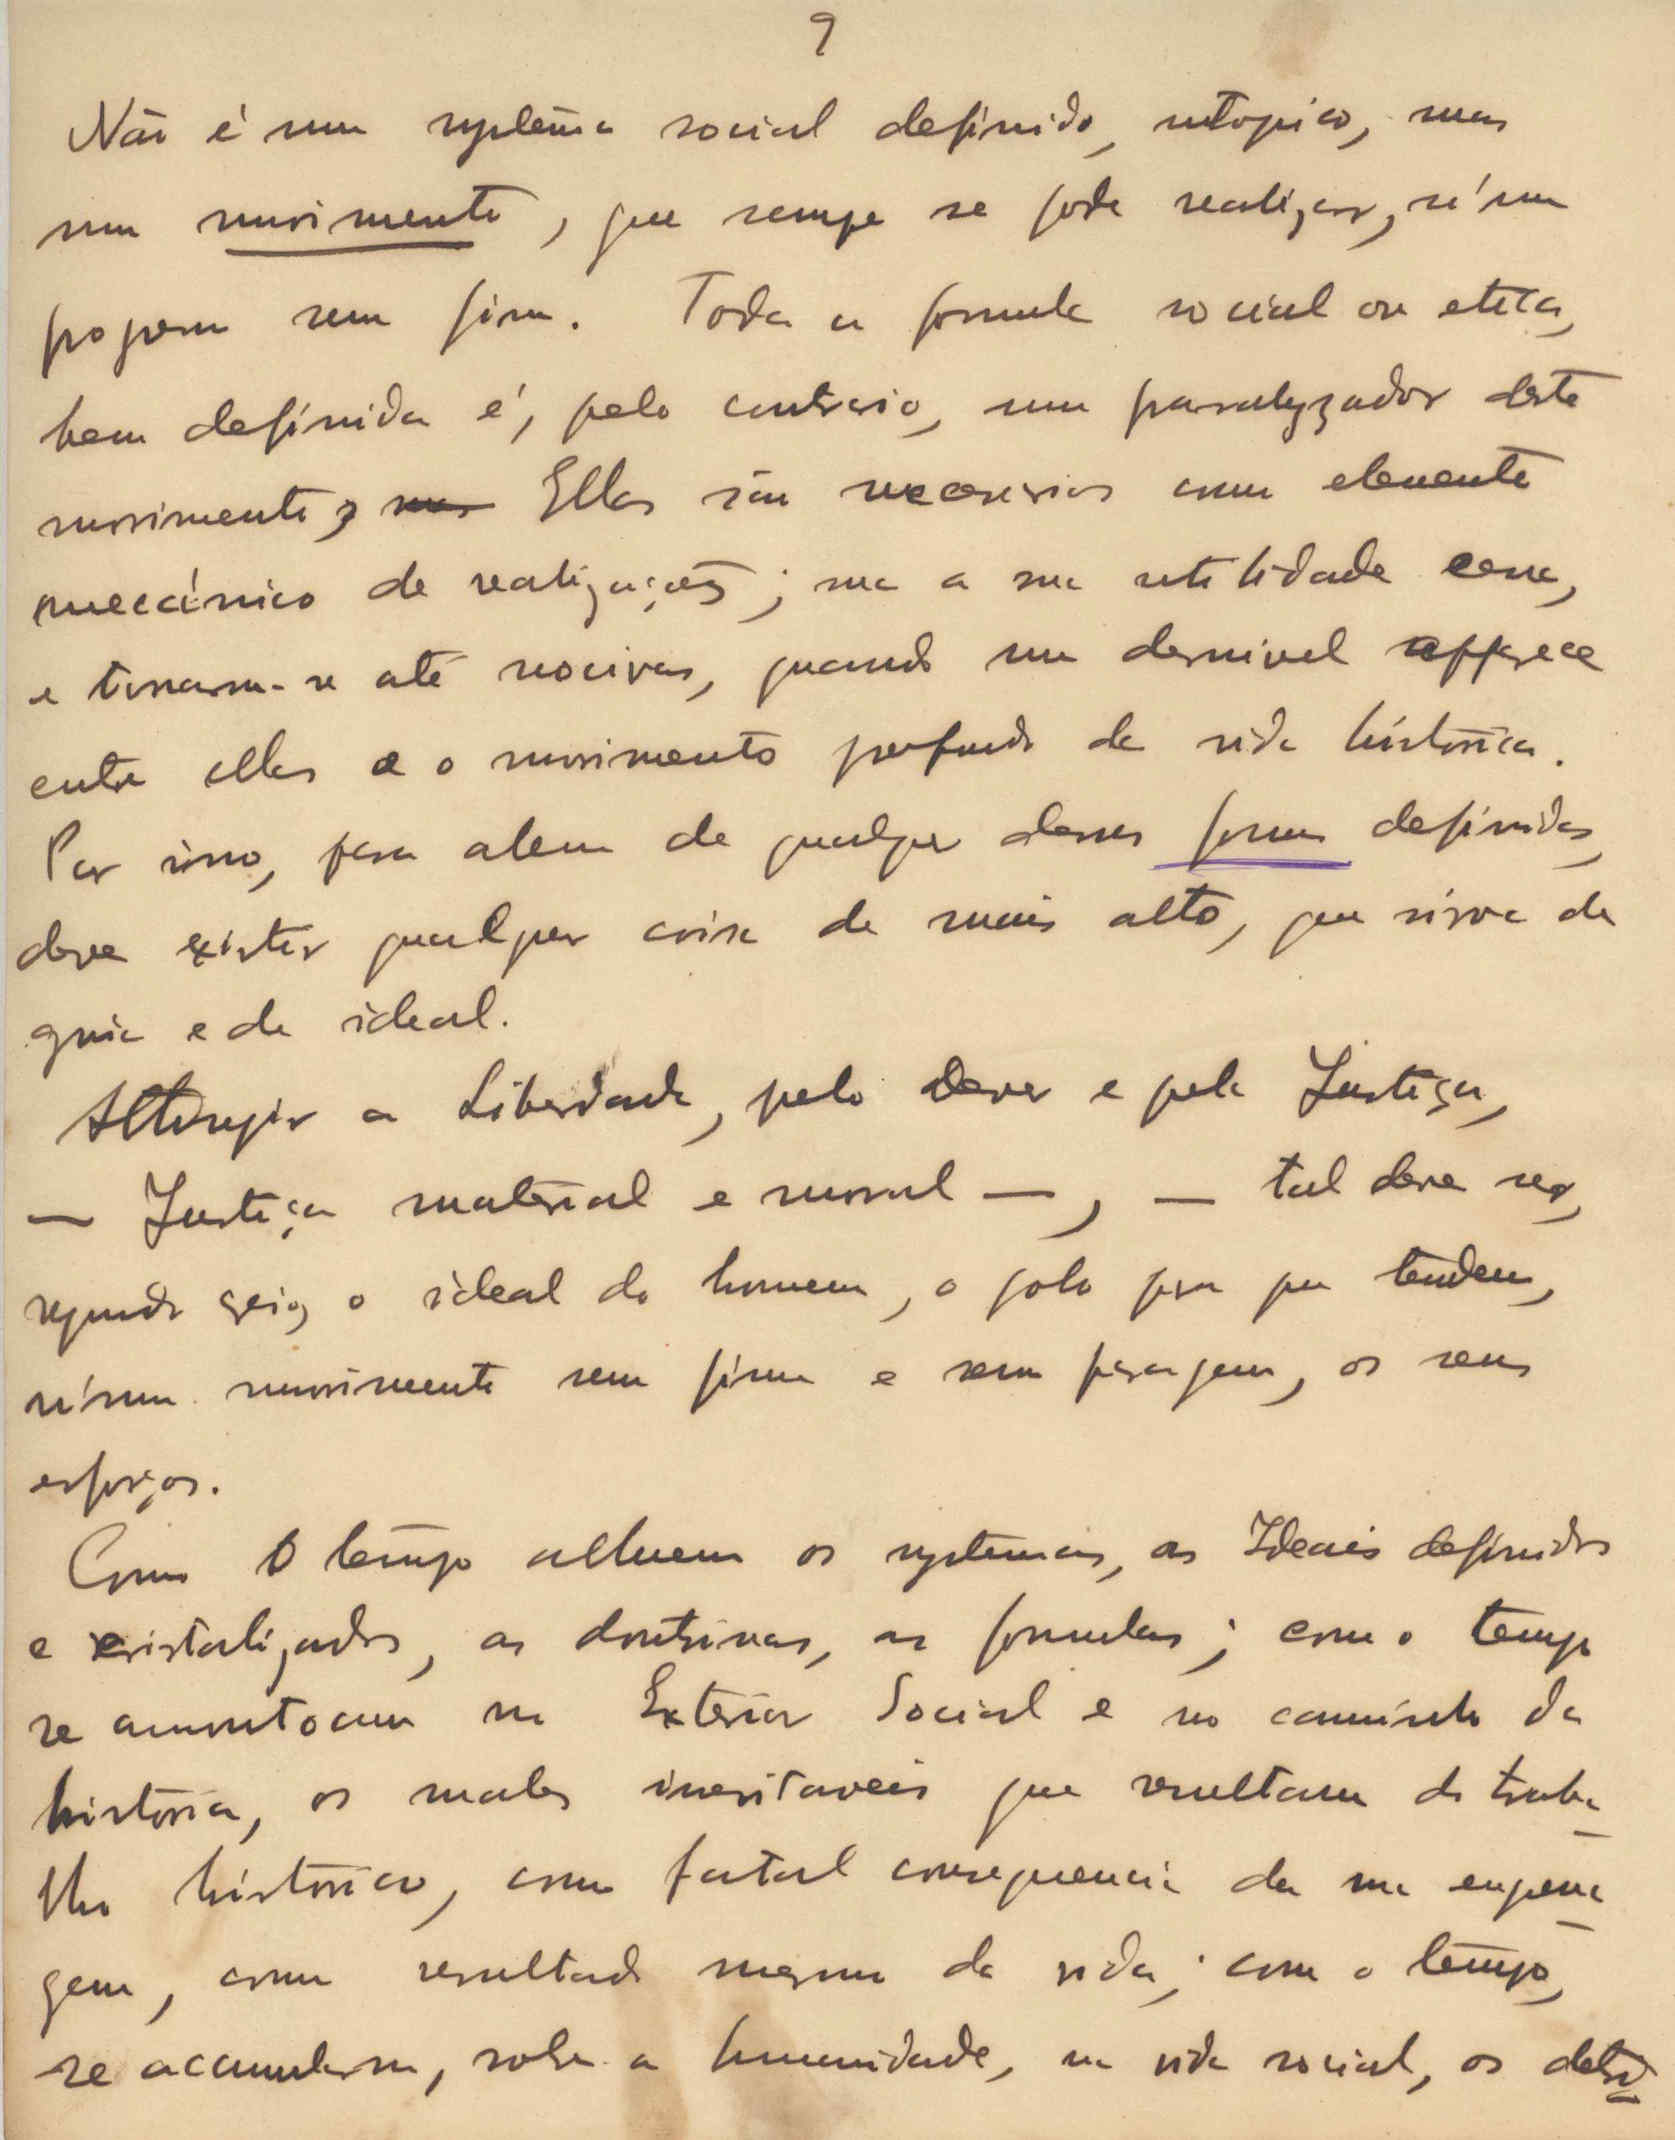 9
Não é um systema social definido, utopico, mas
um movimento, que sempre se pode realizar, n'um
progresso sem fim. Toda a formula social ou etica,
bem definida é, pelo contrario, um paralyzador deste
movimento; mas Ellas são necessarias como elemento
meccánico de realizações; mas a sua utilidade cessa,
e tornam-se até nocivas, quando um desnivel apparece
entre ellas e o movimento profundo da vida histórica.
Por isso, para alem de qualquer dessas formas definidas,
deve existir qualquer coisa de mais alto, que sirva de
guia e de ideal.
Attingir a Liberdade, pelo Dever e pela Justiça,
— Justiça material e moral —, — tal deve ser,
segundo creio, o ideal do homem, o polo para que tendem,
n'um movimento sem fim e sem paragem, os seus
esforços.
Como o tempo alluem os systemas, os Ideais definidos
e cristalizados, as doutrinas, as formulas; com o tempo
se amontoam no Exterior Social e no caminho da
história, os males inevitaveis que resultam do traba-
lho histórico, como fatal consequencia da sua engrena-
gem, como resultado mesmo da vida; com o tempo,
se accumulam, sobre a humanidade, na vida social, os detri-